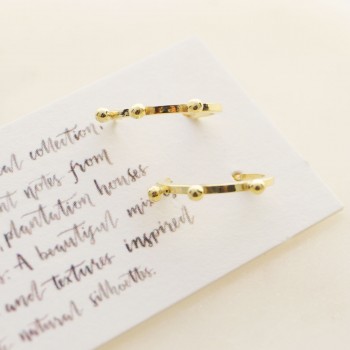 collection,
notes from
plantation houses
A beautiful
and textures inspired
natural silhouettes.